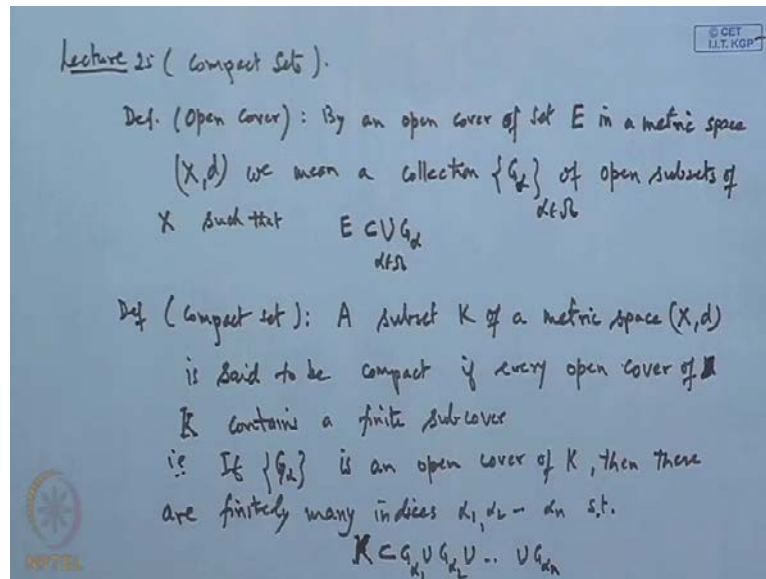 © CET
I.I.T. KGP
Lecture 25 ( Compact Sets ).
Def. (Open Cover) : By an open cover of set E in a metric space
(X,d) we mean a collection {G_α}_{α∈Ω} of open subsets of
X such that E ⊂ ∪_{α∈Ω} G_α
Def (Compact set) : A subset K of a metric space (X,d)
is said to be compact if every open cover of
K contains a finite subcover
ie If {G_α} is an open cover of K, then there
are finitely many indices α₁, α₂ - αₙ s.t.
K ⊂ G_α₁ ∪ G_α₂ ∪ .. ∪ G_αₙ
NPTEL